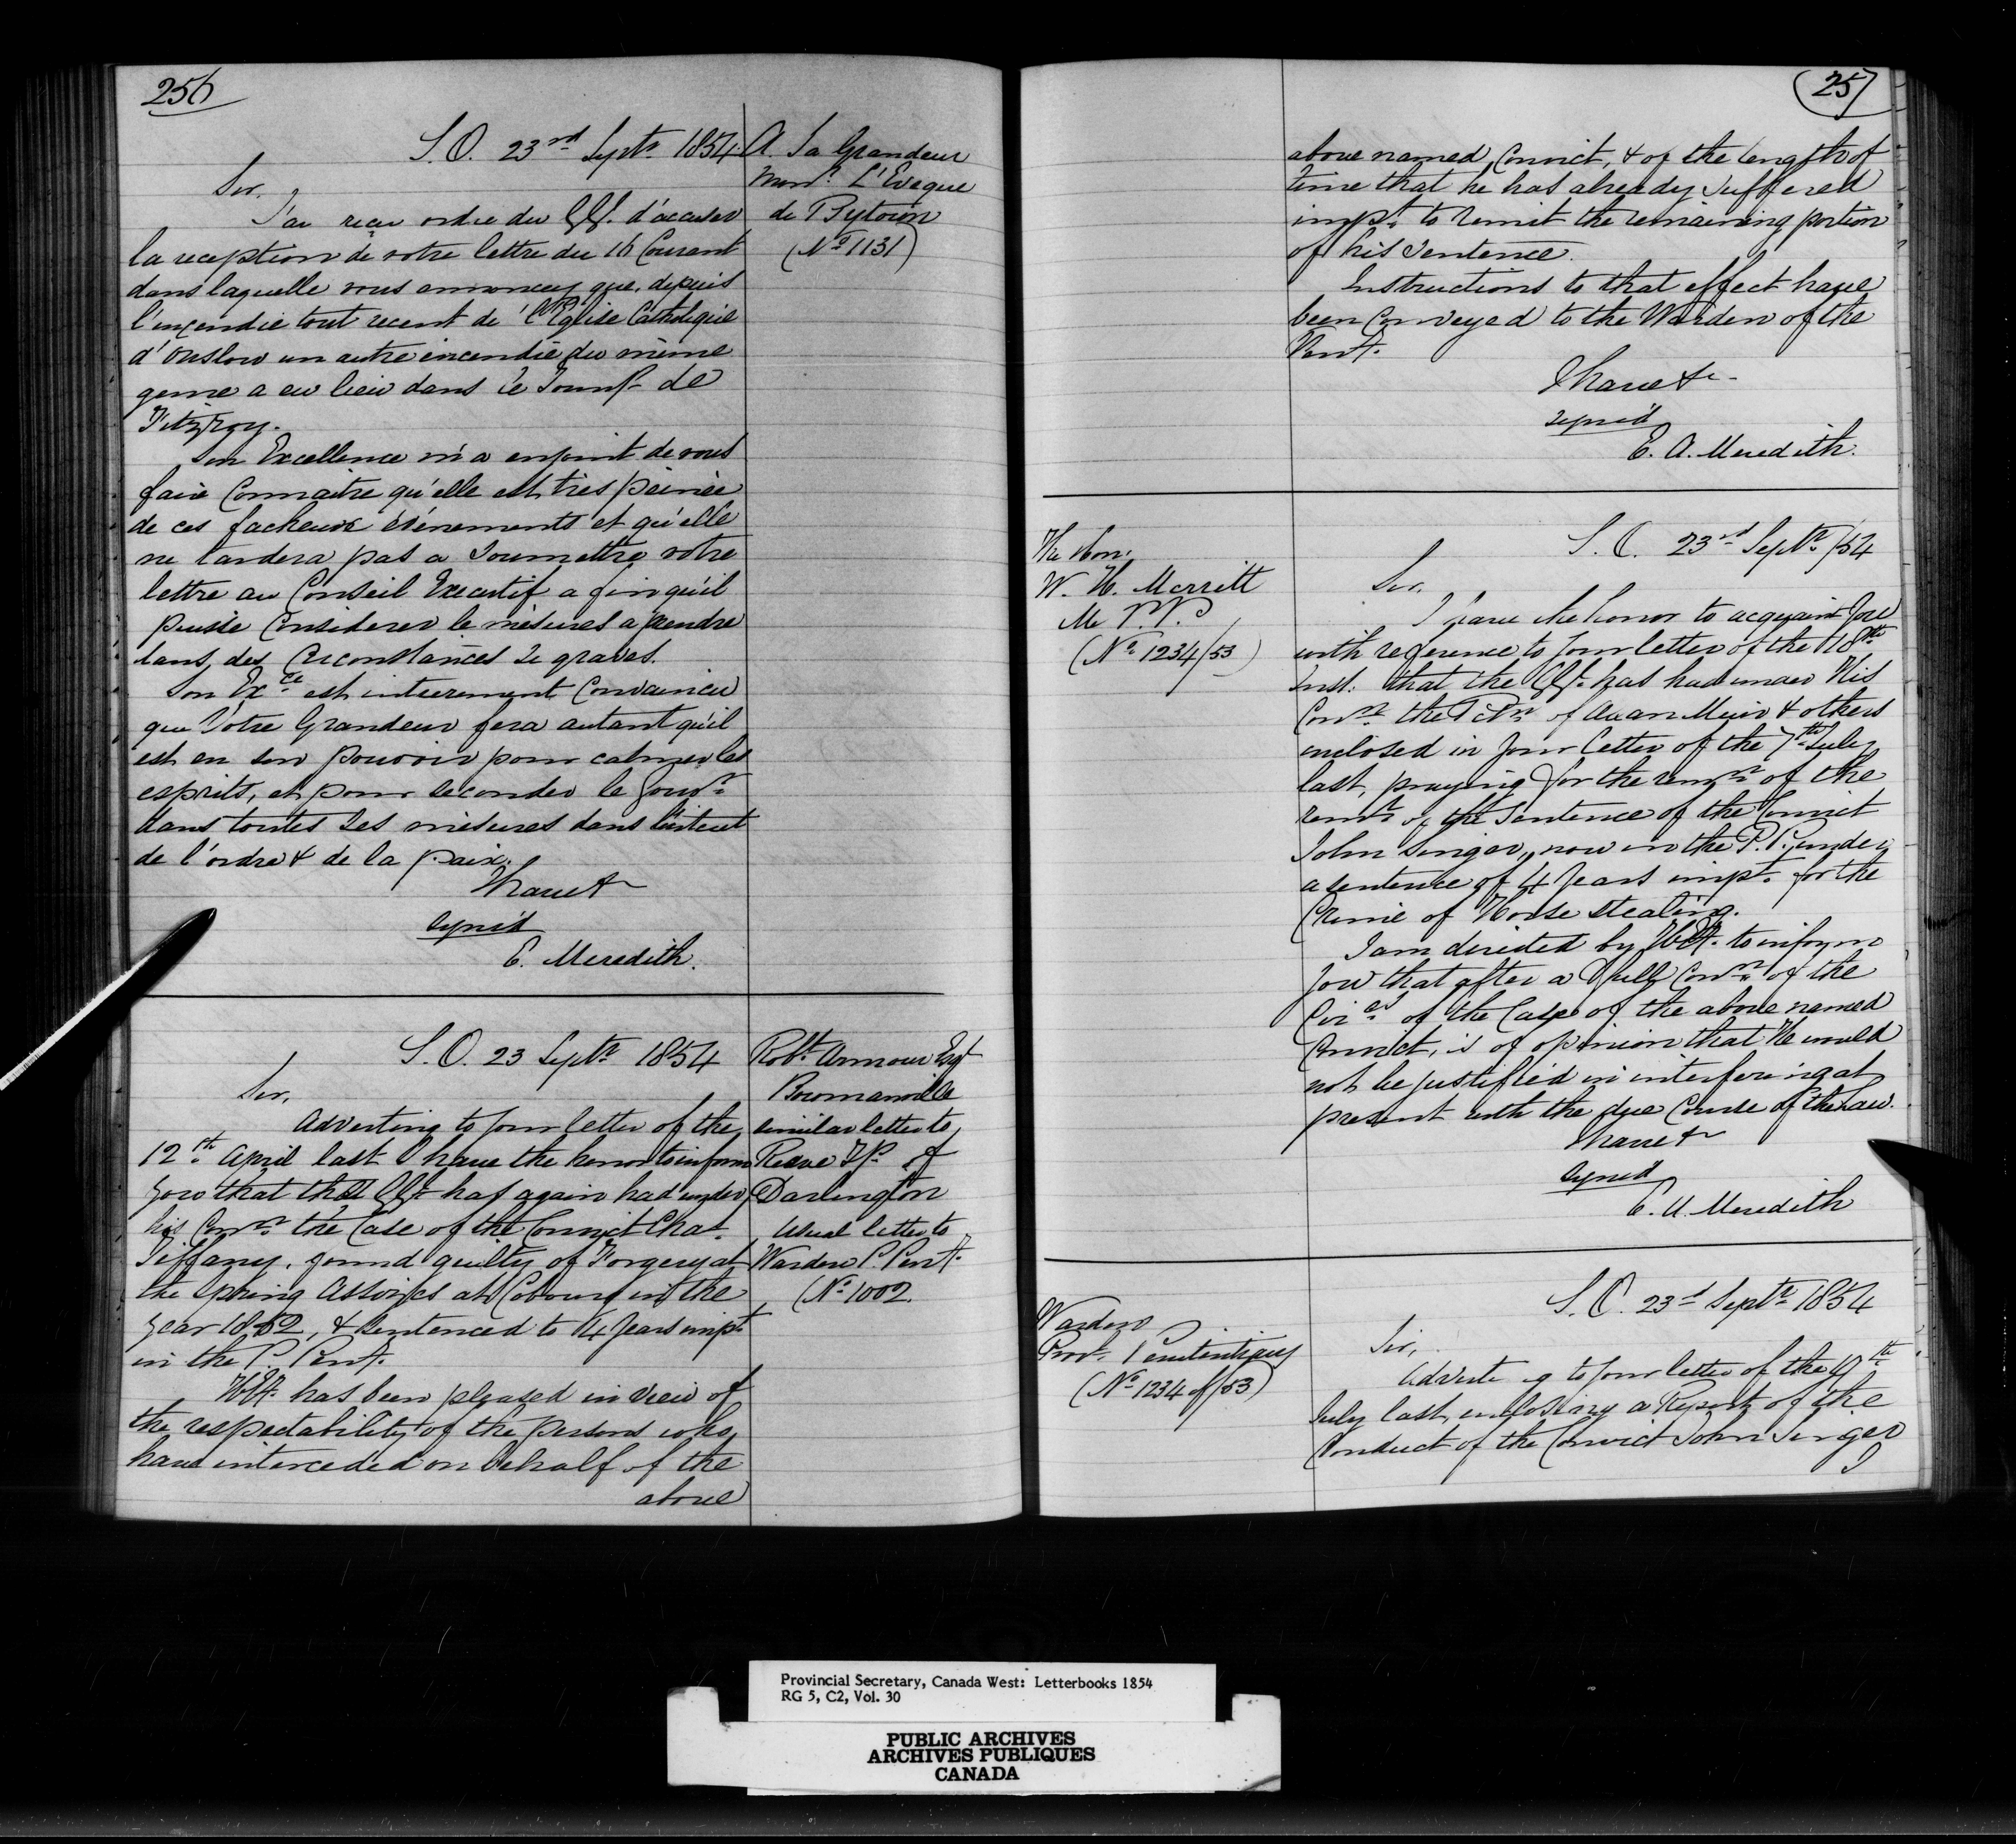 256
S.O. 23rd Septr 1854
A. Sa Grandeur
Monr. L'Eveque
de Bytown
(No 1131)
Sir,
J'ai reçu ordre du GG. d'accuser
la reception de votre lettre du 16 Courant
dans laquelle vous annoncez que, depuis
l'incendie tout recent de l'Eglise Catholique
d'Onslow un autre incendie du même
genre a eu lieu dans le Townp. de
Fitzroy.
Son Excellence m'a enjoint de vous
faire Connaitre qu'elle est très peinée
de ces facheux évènements et qu'elle
ne tardera pas a Soumettre votre
lettre au Conseil Executif a fin qu'il
puisse Considerer le mésures a prendre
dans des Circonstances Si graves.
Son Exce est intierement Convaincu
que Votre Grandeur fera autant qu'il
est en son pouvoir pour calmer les
esprits, et pour seconder le Gouvt
dans toutes Ses mésures dans l'intérêt
de l'ordre & de la paix.
I have &c
signed
E. Meredith.
S.O. 23 Septr 1854
Robt Armour Esq
Bowmanville
similar letter to
Reeve Tp. of
Darlington
usual letter to
Warden P. Pent.
(No 1002
Sir,
Adverting to Your letter of the
12th April last I have the honor to inform
You that the GG has again had under
his Conn the Case of the Convict Chas
Tiffany, found guilty of Forgery at
the Spring Assizes at Cobourg in the
year 1852, & Sentenced to 4 Years impt
in the P. Pent.
H.E. has been pleased in view of
the respectability of the persons who
have interceded on behalf of the
above
257
above named Convict, & of the length of
time that he has already suffered
impt. to remit the remaining portion
of his Sentence.
Instructions to that effect have
been Conveyed to the Warden of the
Pent.
I have &c
signed
E. A. Meredith.
The Hon.
W. H. Merritt
M. P. P.
(No 1234/53)
S.O. 23rd Septr /54
Sir,
I have the honor to acquaint You
with reference to Your letter of the 18th
Inst. that the GG. has had under His
Conn the Petn of Muir & others
enclosed in Your letter of the 7th July
last, praying for the remn of the
remr of the Sentence of the Convict
John Singer, now in the P. P. under
a sentence of 4 Years impt. for the
Crime of Horse Stealing.
I am directed by H.E. to inform
You that after a full Conn of the
Circs of the Case of the above named
Convict, is of opinion that He would
not be justified in interfering at
present with the due Course of the Law.
I have &c
signed
E. A. Meredith
Warden
Provl. Penitentiary
(No 1234 of /53)
S.O. 23rd Septr 1854
Sir,
Adverting to Your letter of the
July last, enclosing a Report of the
Conduct of the Convict John Singer
I
Provincial Secretary, Canada West: Letterbooks 1854
RG 5, C2, Vol. 30
PUBLIC ARCHIVES
ARCHIVES PUBLIQUES
CANADA